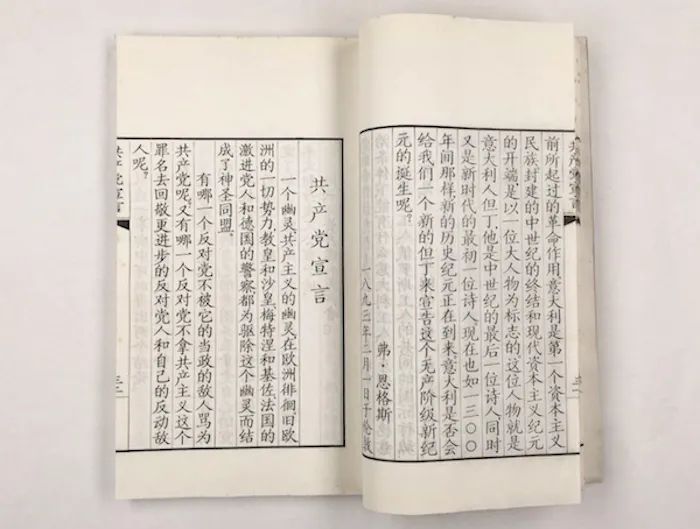 共产党宣言
前所起过的革命作用。意大利是第一个资本主义
民族。封建的中世纪的终结和现代资本主义纪元
的开端,是以一位大人物为标志的。这位人物就是
意大利人但丁,他是中世纪的最后一位诗人,同时
又是新时代的最初一位诗人。现在也如一三〇〇
年间那样,新的历史纪元正在到来。意大利是否会
给我们一个新的但丁来宣告这个无产阶级新纪
元的诞生呢?
弗·恩格斯
一八九三年二月一日于伦敦
共产党宣言
一个幽灵,共产主义的幽灵,在欧洲徘徊。旧欧
洲的一切势力,教皇和沙皇、梅特涅和基佐、法国的
激进党人和德国的警察,都为驱除这个幽灵而结
成了神圣同盟。
有哪一个反对党不被它的当政的敌人骂为
共产党呢?又有哪一个反对党不拿共产主义这个
罪名去回敬更进步的反对党人和自己的反动敌
人呢?
共产党宣言